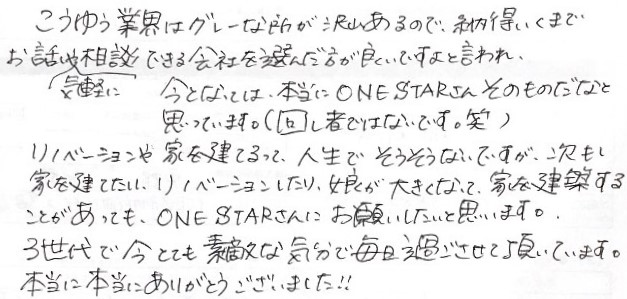 こうゆう業界はグレーな所が沢山あるので、納得いくまで
お話や相談できる会社を選んだ方が良いですよと言われ、
気軽に 今となっては、本当にONE STARさんそのものだなと
思っています。(回し者ではないです。笑)
リノベーションや家を建てるって、人生でそうそうないですが、次もし
家を建てたい、リノベーションしたり、娘が大きくなって、家を建築する
ことがあっても、ONE STARさんにお願いしたいと思います。
3世代で今とても素敵な気分で毎日過ごさせて頂いています。
本当に本当にありがとうございました!!